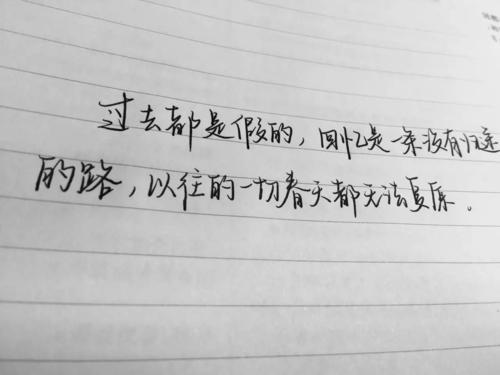 过去都是假的，回忆是一条没有归途
的路，以往的一切春天都无法复原。